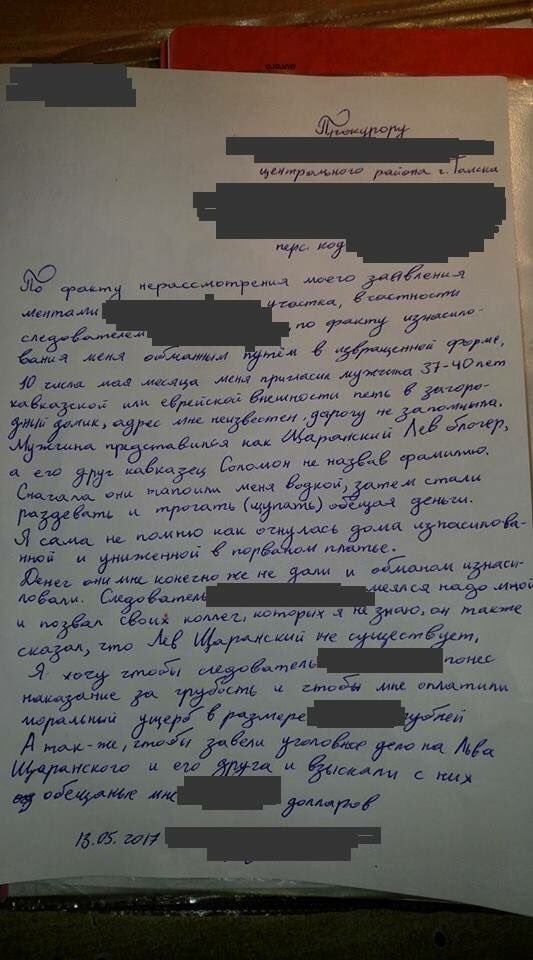 Прокурору
центрального района г. Томска
перс. код
По факту нерассмотрения моего заявления
ментами участка, в частности
следователем , по факту изнасило-
вания меня обманным путём в извращенной форме,
10 числа мая месяца меня пригласил мужчина 37-40 лет
кавказской или еврейской внешности петь в загоро-
дный домик, адрес мне неизвестен, дорогу не запомнила.
Мужчина представился как Щаранский Лев блогер,
а его друг кавказец Соломон не назвав фамилию.
Сначала они напоили меня водкой, затем стали
раздевать и трогать (щупать) обещая деньги.
Я сама не помню как очнулась дома изнасилова-
нной и униженной в порваном платье.
Денег они мне конечно же не дали и обманом изнаси-
ловали. Следователь меялся надо мной
и позвал своих коллег, которых я не знаю, он также
сказал, что Лев Щаранский не существует.
Я хочу чтобы следователь понес
наказание за грубость и чтобы мне оплатили
моральный ущерб в размере рублей
А так-же, чтобы завели уголовное дело на Льва
Щаранского и его друга и взыскали с них
обещаные мне долларов
13.05.2017